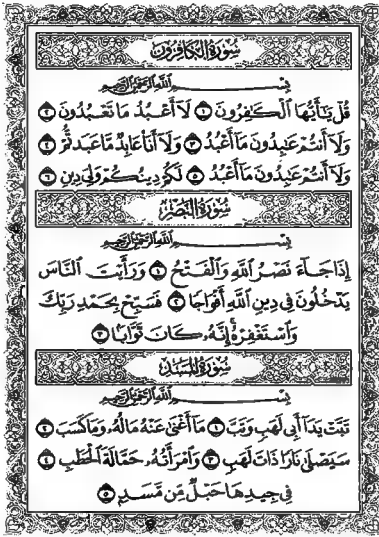 سُورَةُ الْكَافِرُونَ
بِسْمِ اللَّهِ الرَّحْمَٰنِ الرَّحِيمِ
قُلْ يَا أَيُّهَا الْكَافِرُونَ ١ لَا أَعْبُدُ مَا تَعْبُدُونَ ٢
وَلَا أَنتُمْ عَابِدُونَ مَا أَعْبُدُ ٣ وَلَا أَنَا عَابِدٌ مَّا عَبَدتُّمْ ٤
وَلَا أَنتُمْ عَابِدُونَ مَا أَعْبُدُ ٥ لَكُمْ دِينُكُمْ وَلِيَ دِينِ ٦
سُورَةُ النَّصْرِ
بِسْمِ اللَّهِ الرَّحْمَٰنِ الرَّحِيمِ
إِذَا جَاءَ نَصْرُ اللَّهِ وَالْفَتْحُ ١ وَرَأَيْتَ النَّاسَ
يَدْخُلُونَ فِي دِينِ اللَّهِ أَفْوَاجًا ٢ فَسَبِّحْ بِحَمْدِ رَبِّكَ
وَاسْتَغْفِرْهُ إِنَّهُ كَانَ تَوَّابًا ٣
سُورَةُ الْمَسَدِ
بِسْمِ اللَّهِ الرَّحْمَٰنِ الرَّحِيمِ
تَبَّتْ يَدَا أَبِي لَهَبٍ وَتَبَّ ١ مَا أَغْنَىٰ عَنْهُ مَالُهُ وَمَا كَسَبَ ٢
سَيَصْلَىٰ نَارًا ذَاتَ لَهَبٍ ٣ وَامْرَأَتُهُ حَمَّالَةَ الْحَطَبِ ٤
فِي جِيدِهَا حَبْلٌ مِّن مَّسَدٍ ٥